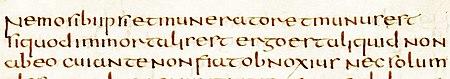 Nemo sibi ipsi et munerator et munus est
si quod immortalis est ergo est aliquid non
abeo cui ante non fiat obnoxius nec solum